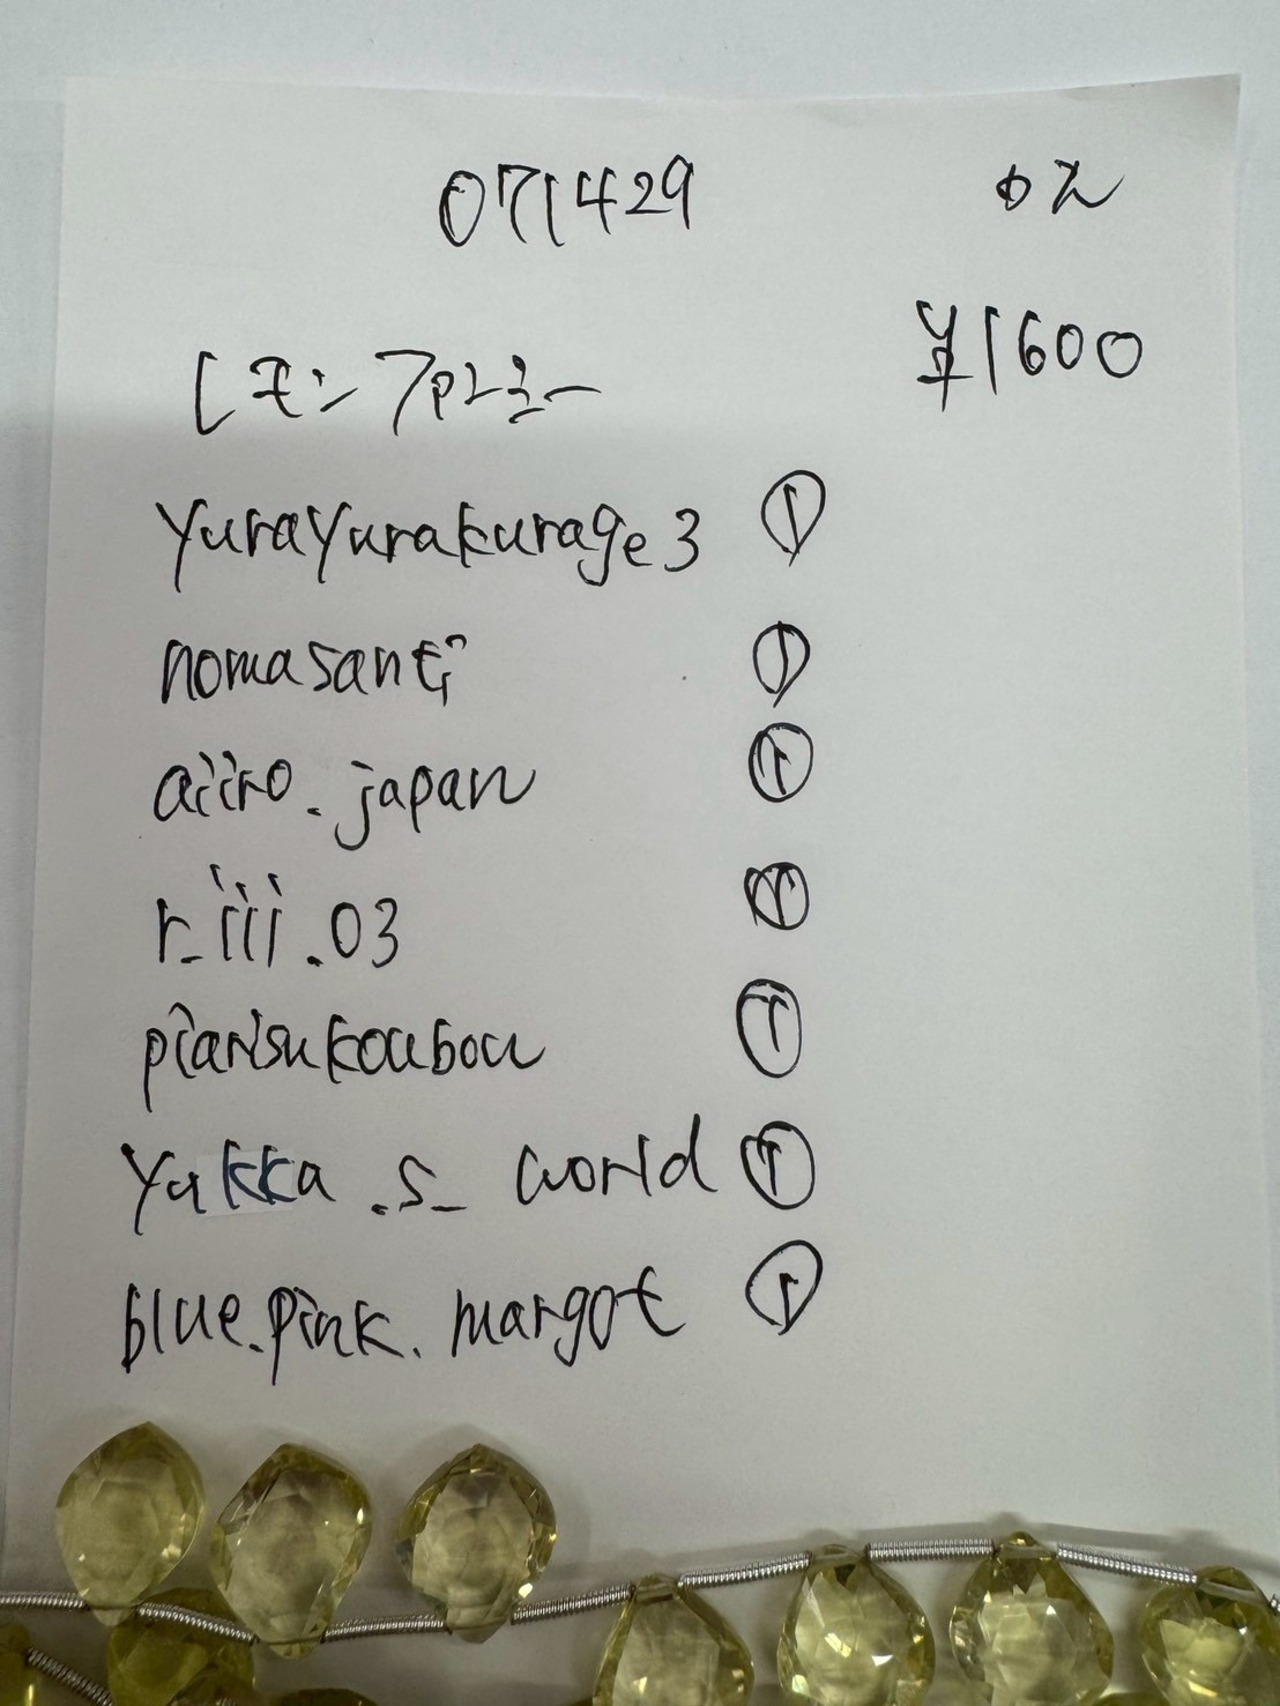 071429
¥1600
yurayurakurage3 ①
nomasanti ①
aiiro.japan ①
r_iii.03 ①
piarisukoubou ①
yukka.s_world ①
blue.pink.margot ①